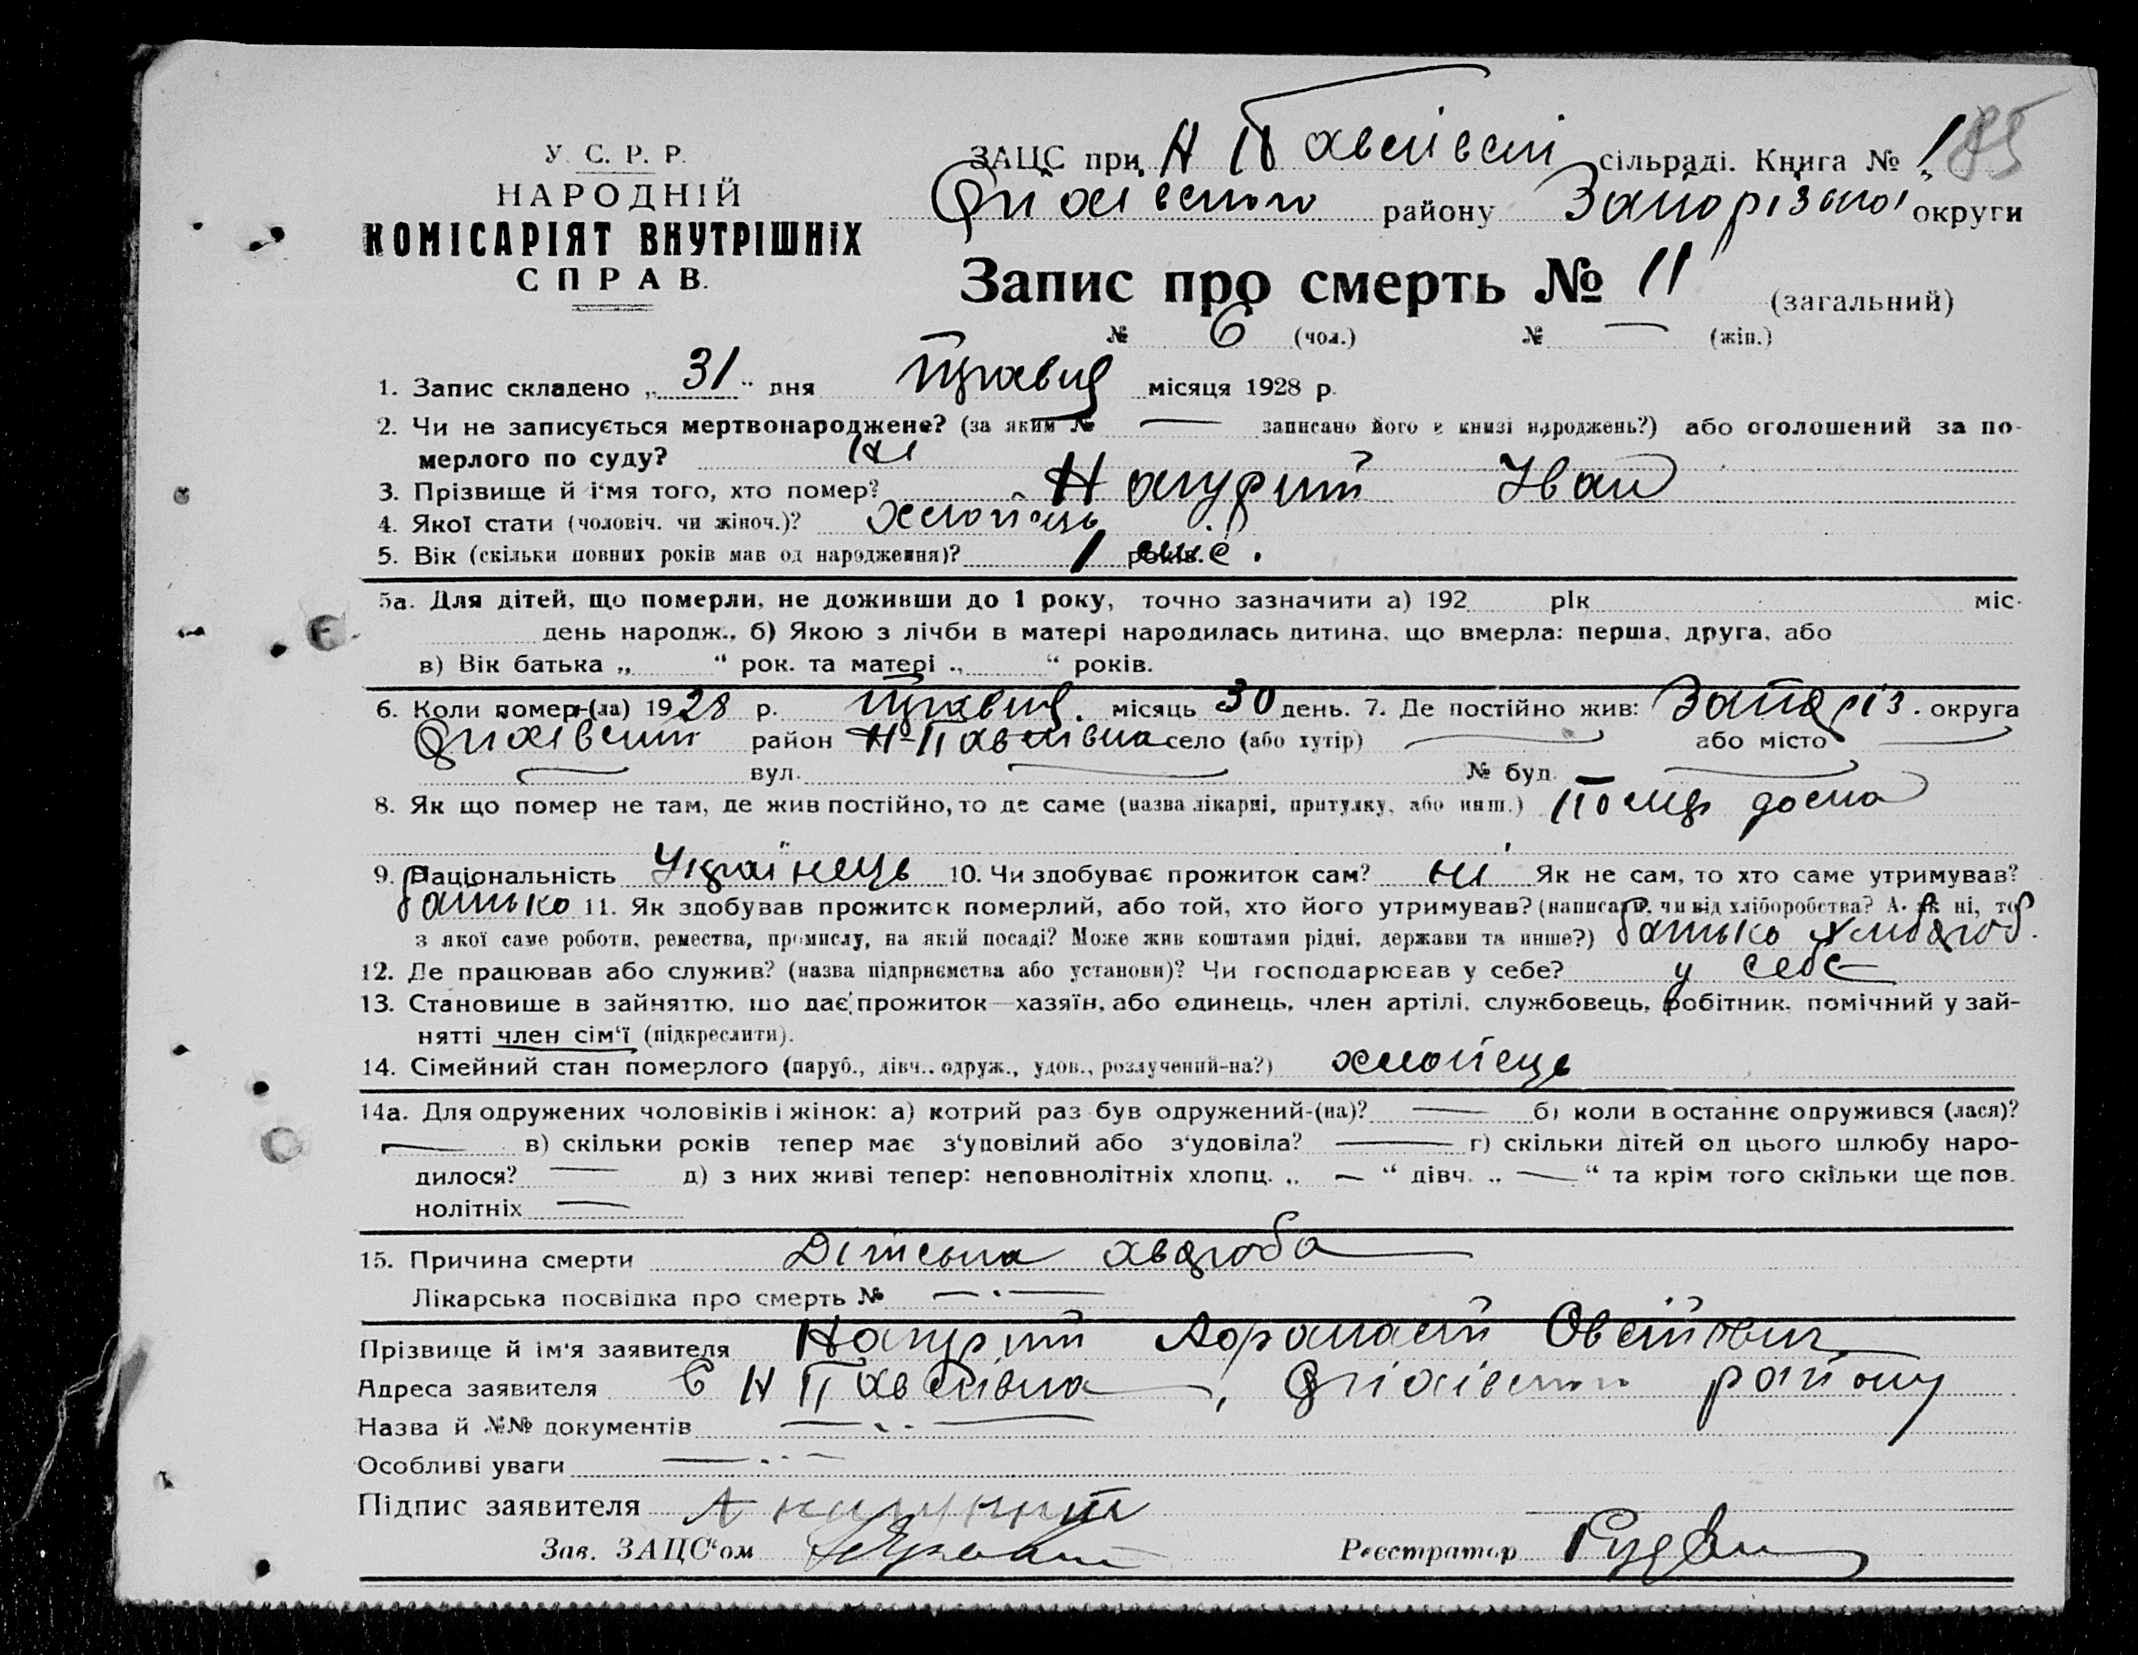 У. С. Р. Р.
НАРОДНІЙ
КОМІСАРІЯТ ВНУТРІШНІХ
СПРАВ.
ЗАЦС при Н Павлівскі сільраді. Книга № 1 85
району Запорізької округи
Запис про смерть № 11 (загальний)
№ 6 (чол.) № — (жін.)
1. Запис складено „31“ дня Травня місяця 1928 р.
2. Чи не записується мертвонароджене? (за яким № — записано його в книзі народжень?) або оголошений за по-
мерлого по суду? Ні
3. Прізвище й і'мя того, хто помер? Іван
4. Якої стати (чоловіч. чи жіноч.)? Хлопець
5. Вік (скільки повних років мав од народження)? 1
5а. Для дітей, що померли, не доживши до 1 року, точно зазначити а) 192 рік міс.
день народж., б) Якою з лічби в матері народилась дитина, що вмерла: перша, друга, або
в) Вік батька „ “ рок. та матері „ “ років.
6. Коли помер-(ла) 1928 р. Травня місяць 30 день. 7. Де постійно жив: Запоріз. округа
район Н-Павлівка село (або хутір) — або місто —
— вул. — № буд. —
8. Як що помер не там, де жив постійно, то де саме (назва лікарні, притулку, або инш.) дома
9. Національність Українець 10. Чи здобуває прожиток сам? ні Як не сам, то хто саме утримував?
батько 11. Як здобував прожиток померлий, або той, хто його утримував? (написати, чи від хліборобства? А. як ні, то
з якої саме роботи, ремества, промислу, на якій посаді? Може жив коштами рідні, держави та инше?) батько хлібороб.
12. Де працював або служив? (назва підприємства або установи)? Чи господарював у себе? у себе
13. Становище в зайняттю, що дає прожиток—хазяїн, або одинець, член артілі, службовець, робітник, помічний у зай-
нятті член сім'ї (підкреслити).
14. Сімейний стан померлого (паруб., дівч., одруж., удов., розлучений-на?) хлопець
14а. Для одружених чоловіків і жінок: а) котрий раз був одружений-(на)? — б) коли в останнє одружився (лася)?
— в) скільки років тепер має з'удовілий або з'удовіла? — г) скільки дітей од цього шлюбу наро-
дилося? — д) з них живі тепер: неповнолітніх хлопц. „ — “ дівч. „ — “ та крім того скільки ще пов.
нолітніх —
15. Причина смерти Дітська хвороба
Лікарська посвідка про смерть № — . —
Прізвище й ім'я заявителя Афанасій
Адреса заявителя с Н Павлівка, району
Назва й №№ документів —
Особливі уваги —
Підпис заявителя
Зав. ЗАЦС'ом Реєстратор